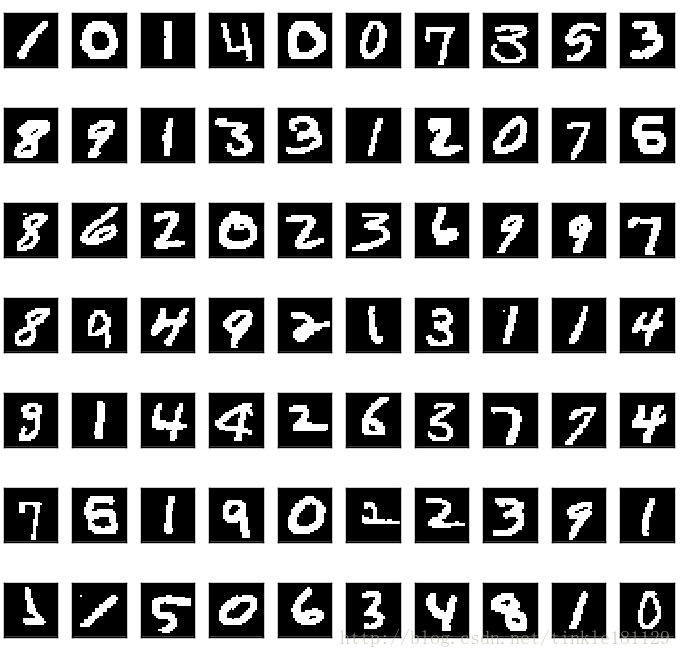 1 0 1 4 0 0 7 3 5 3
8 9 1 3 3 1 2 0 7 5
8 6 2 0 2 3 6 9 9 7
8 9 4 9 2 1 3 1 1 4
9 1 4 4 2 6 3 7 7 4
7 5 1 9 0 2 2 3 9 1
1 1 5 0 6 3 4 8 1 0
http://blog.csdn.net/tinkle181129